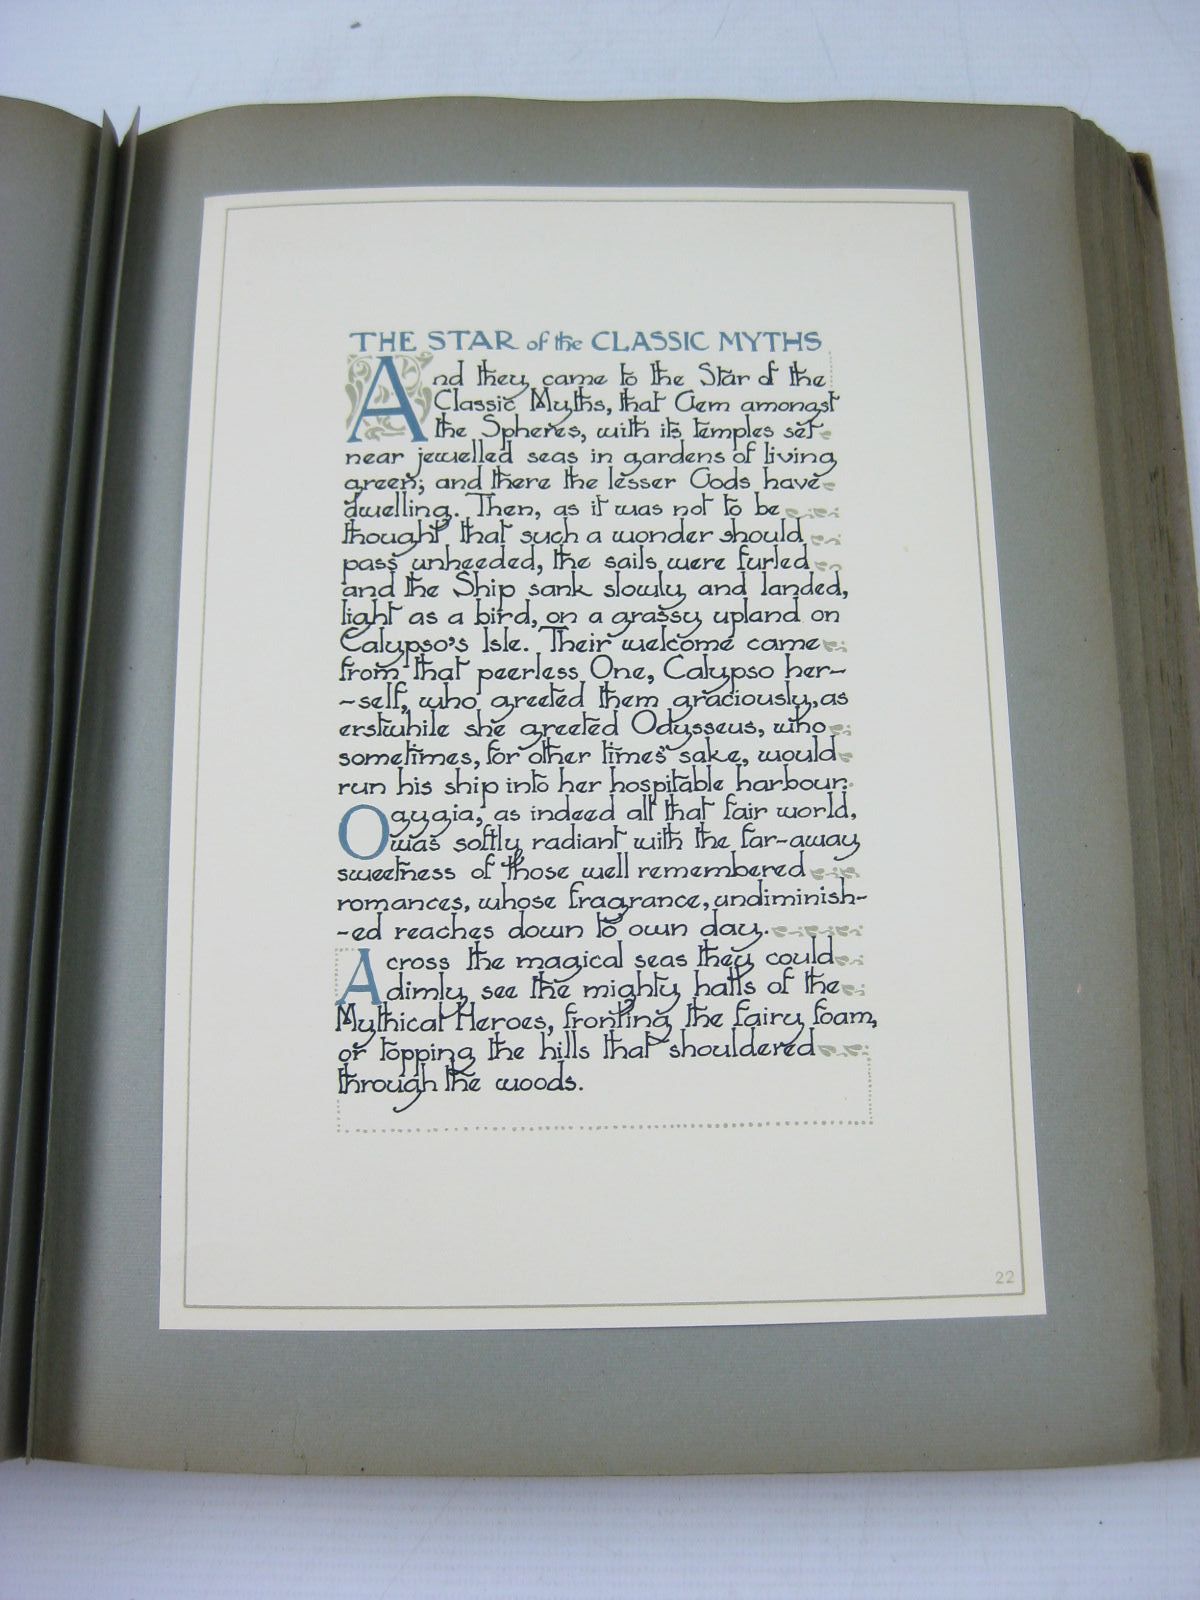 THE STAR of the CLASSIC MYTHS
And they came to the Star of the
Classic Myths, that Gem amongst
the Spheres, with its temples set
near jewelled seas in gardens of living
green; and there the lesser Gods have
dwelling. Then, as it was not to be
thought that such a wonder should
pass unheeded, the sails were furled
and the Ship sank slowly and landed,
light as a bird, on a grassy upland on
Calypso's Isle. Their welcome came
from that peerless One, Calypso her-
-self, who greeted them graciously, as
erstwhile she greeted Odysseus, who
sometimes, for other times' sake, would
run his ship into her hospitable harbour.
Ogygia, as indeed all that fair world,
was softly radiant with the far-away
sweetness of those well remembered
romances, whose fragrance, undiminish-
-ed reaches down to own day.
Across the magical seas they could
dimly see the mighty halls of the
Mythical Heroes, fronting the fairy foam,
or topping the hills that shouldered
through the woods.
22